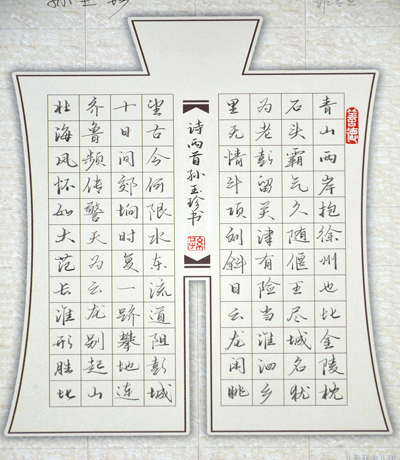 青山两岸抱徐州也比金陵枕
石头霸气久随偃王尽城名犹
为老彭留关津有险当淮泗乡
里无情斗项刘斜日云龙闲眺
诗两首孙玉珍书
望古今何限水东流道阻彭城
十日间郊坰时复一跻攀地连
齐鲁频传警天为云龙别起山
杜海风怀如大范长淮形胜比